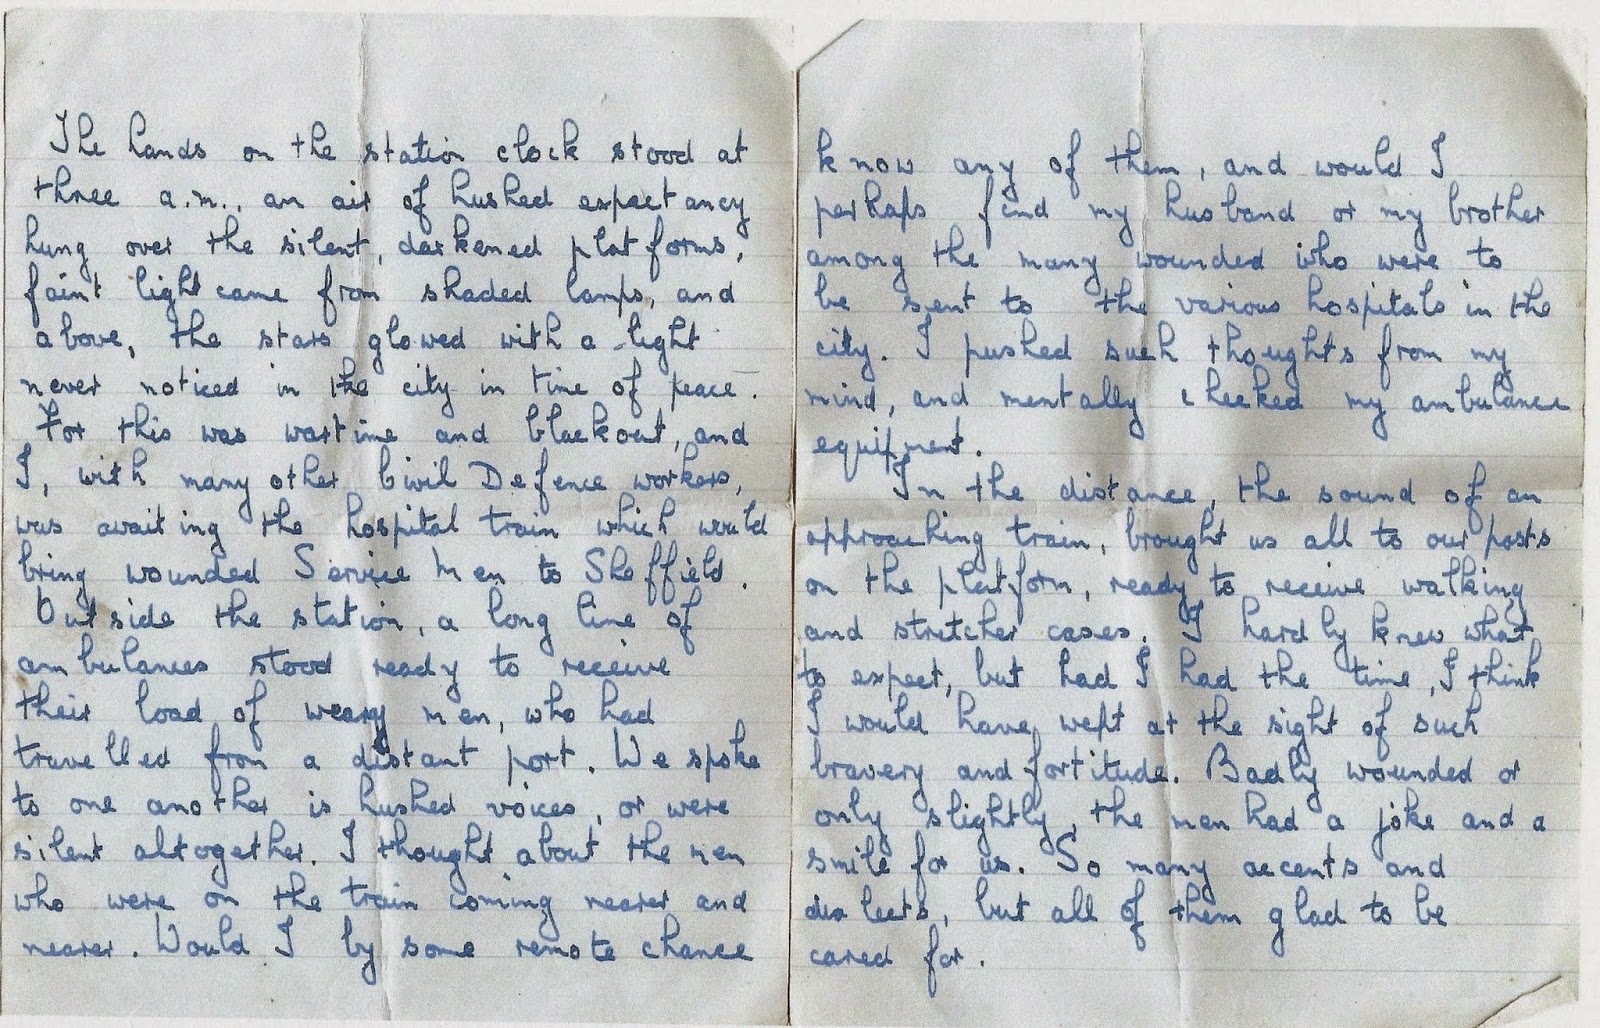 The hands on the station clock stood at
three a.m., an air of hushed expectancy
hung over the silent, darkened platforms,
faint light came from shaded lamps, and
above, the stars glowed with a light
never noticed in the city in time of peace.
For this was wartime and blackout, and
I, with many other Civil Defence workers,
was awaiting the hospital train which would
bring wounded Service Men to Sheffield.
Outside the station, a long line of
ambulances stood ready to receive
their load of weary men, who had
travelled from a distant port. We spoke
to one another is hushed voices, or were
silent altogether. I thought about the men
who were on the train coming nearer and
nearer. Would I by some remote chance
know any of them, and would I
perhaps find my husband or my brother
among the many wounded who were to
be sent to the various hospitals in the
city. I pushed such thoughts from my
mind, and mentally checked my ambulance
equipment.
In the distance, the sound of an
approaching train, brought us all to our posts
on the platform, ready to receive walking
and stretcher cases. I hardly knew what
to expect, but had I had the time, I think
I would have wept at the sight of such
bravery and fortitude. Badly wounded or
only slightly, the men had a joke and a
smile for us. So many accents and
dialects, but all of them glad to be
cared for.